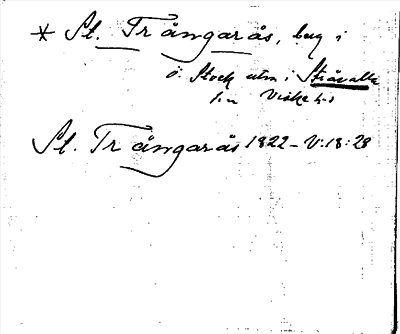 * St. Trångarås, bug i
ö. Stock utm i Stråvalla
sn Viske hd
St. Trångarås 1822 – V:18:28